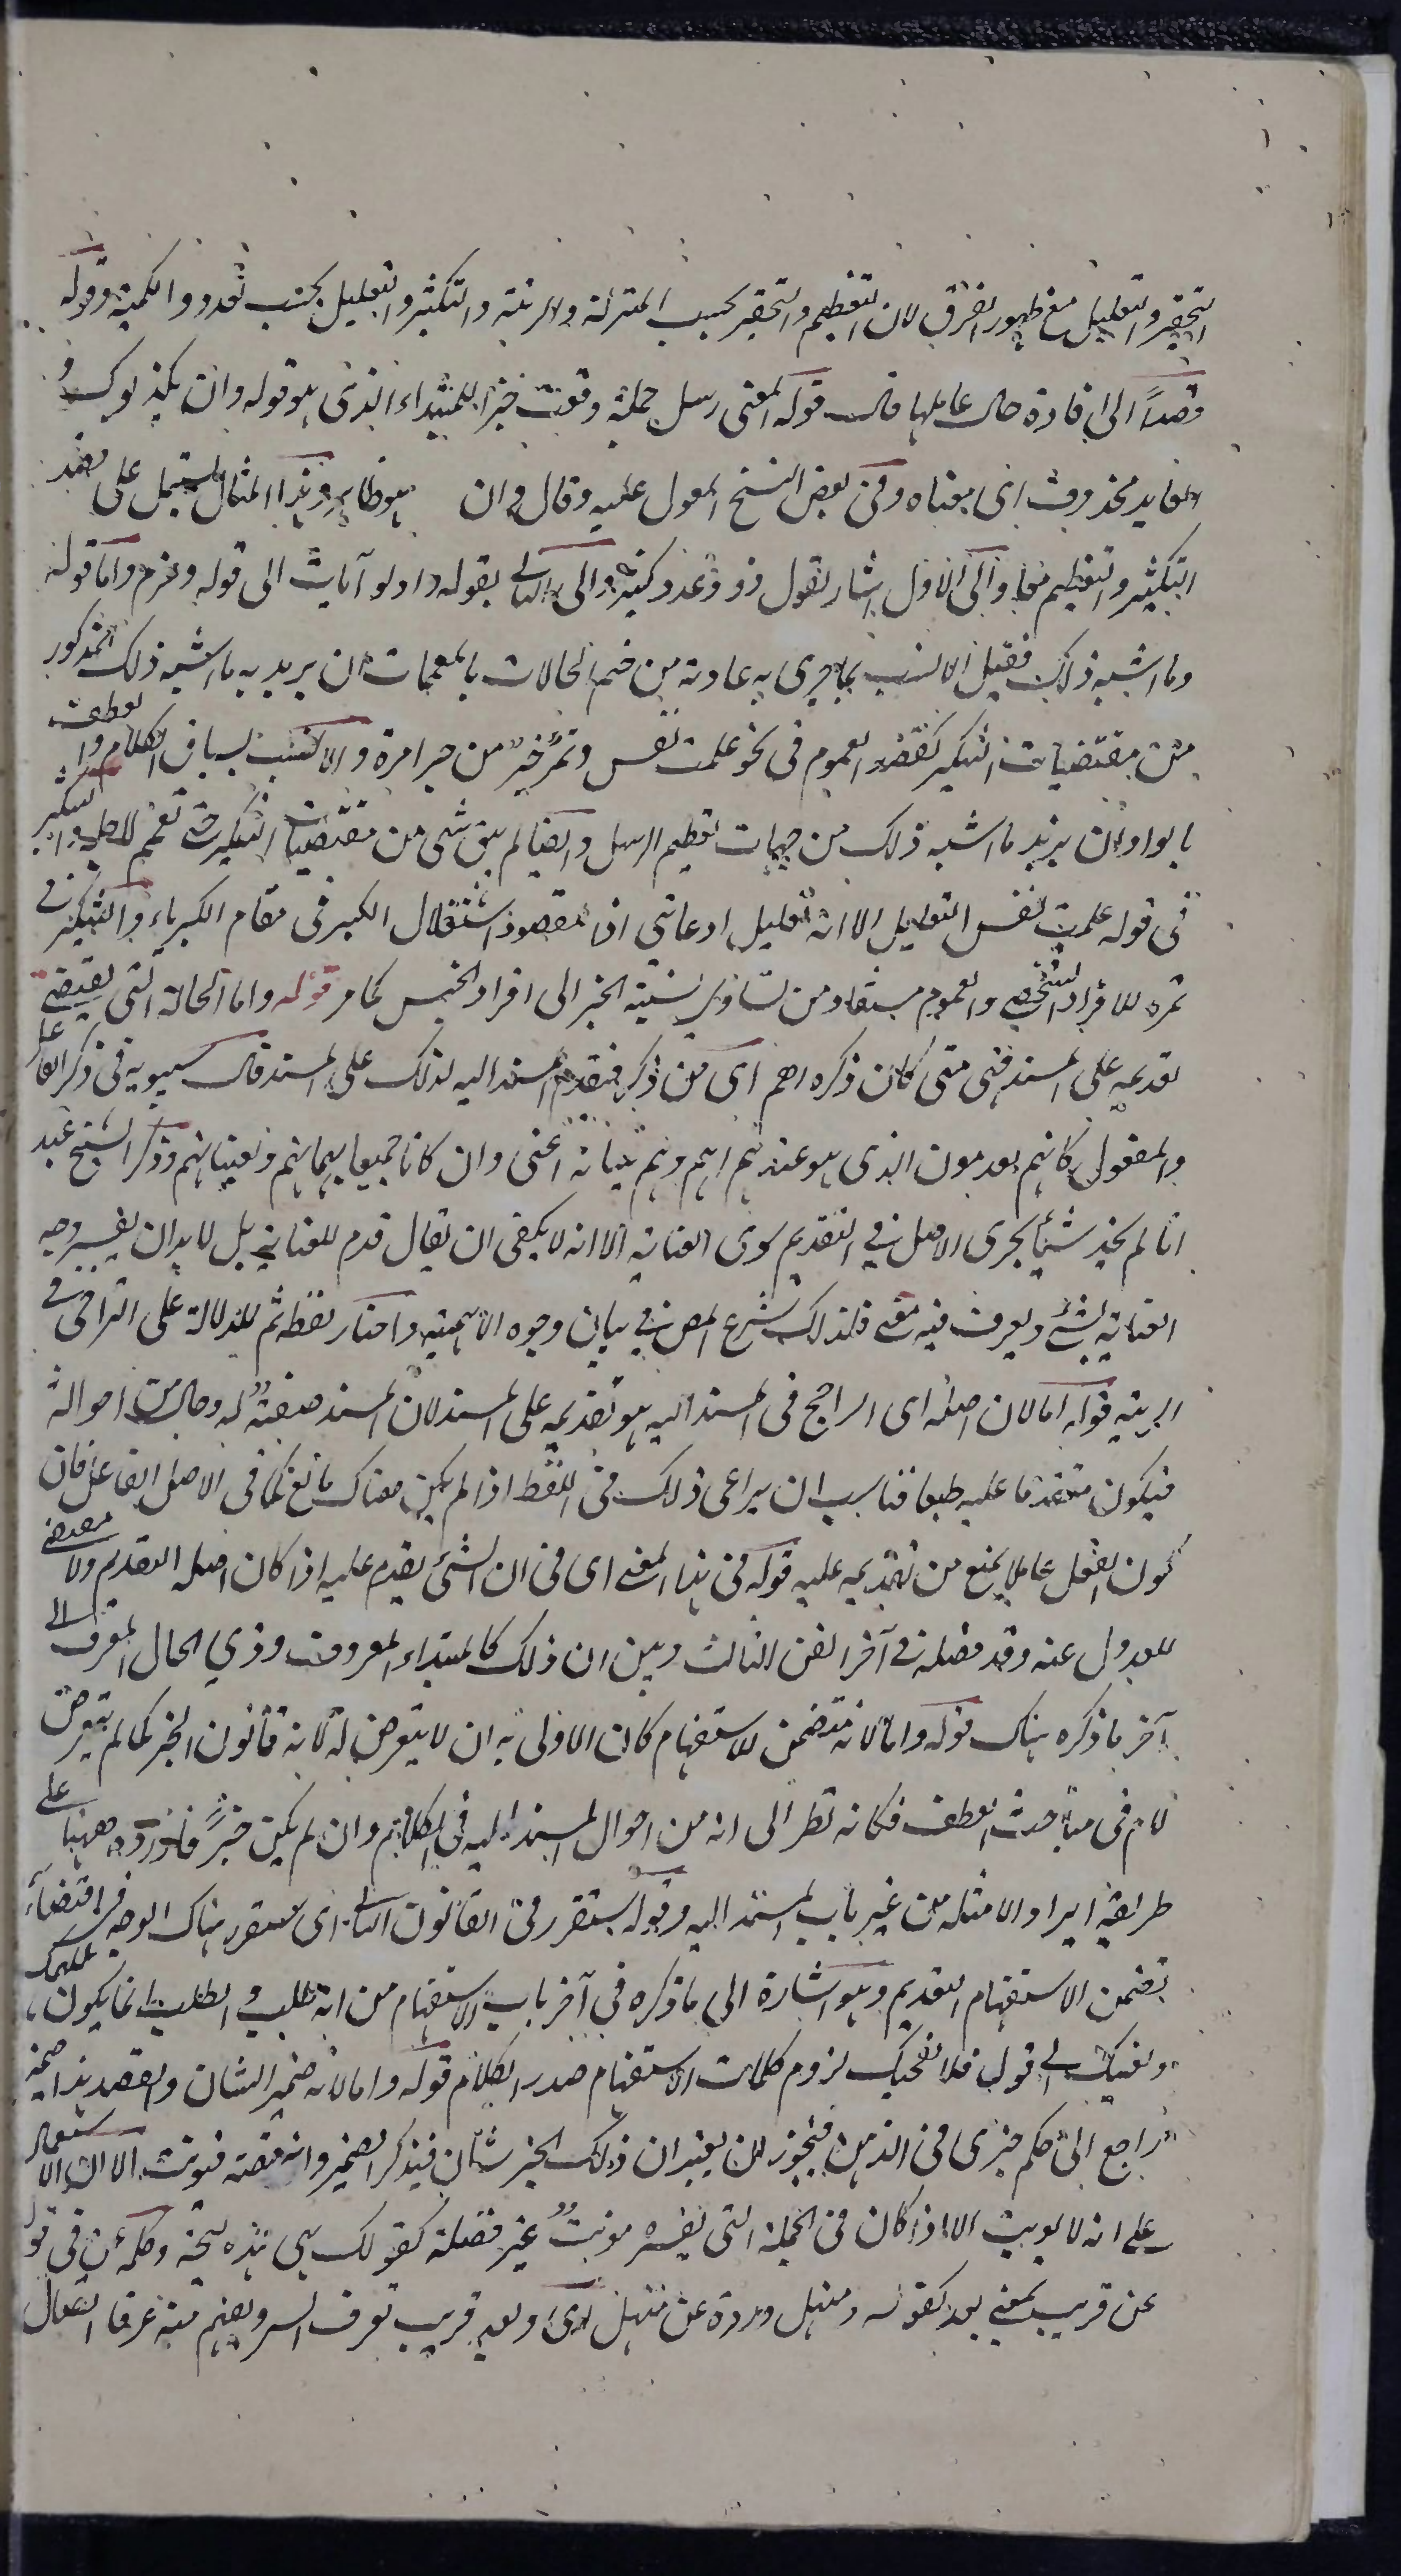 التحقير والتقليل مع ظهور الفرق لان التعظيم والتحقير بحسب المنزلة والرتبة والتكثير والتقليل بحسب تعدد والكمية وقوله
قصداً الى افادة حال عاملها قال قوله المعنى رسل جملة وقعت خبرا للمبتداء الذى هو قوله وان يكذبوك و
العايد محذوف اى معناه وفى بعض النسخ المعول عليه وقال وان هو ظاهر وهذا المثال يشتمل على قصد
التكثير والتعظيم معا والى الاول اشار بقول ذوو عدد كثير والى الثانى بقوله واولو آيات الى قوله وعزم واما قوله
وما اشبه ذلك فقيل الانسب بما جرى به عادته من ختم الحالات بالمعممات ان يريد به ما اشبه ذلك المذكور
من مقتضيات التنكير كقصد العموم فى نحو علمت نفس وتمرة خير من جرادة والانسب بسياق الكلام والعطف
بالواو ان يريد ما اشبه ذلك من جهات تعظيم الرسل وايضا لم يبق شى من مقتضيات التنكير حتى تعمم لاجله والتنكير
فى قوله علمت نفس التقليل الا انه تقليل ادعائى اذ المقصود استقلال الكبير فى مقام الكبرياء والتنكير فى
تمرة للافراد الشخصى والعموم مستفاد من تساوى نسبة الخبر الى افراد الجنس كما مر قوله واما الحالة التى تقتضى
تقديمه على المسند فهى متى كان ذكره اهم اى من ذكر فتقدم المسند اليه لذلك على المسند قال سيبويه فى ذكر الفاعل
والمفعول كانهم يقدمون الذى هو عندهم اهم وهم ببيانه اعنى وان كانا جميعا يهمانهم ويعنيانهم وذكر الشيخ عبد
انا لم نجد شيئا يجرى الاصل فى التقديم سوى العناية الا انه لا يكفى ان يقال قدم للعناية بل لابد ان يفسر وجه
العناية بشئ ويعرف فيه معنى فلذلك شرع المص فى بيان وجوه الاهمية واختار لفظة ثم للدلالة على التراخى فى
الرتبة قوله اما لان اصله اى الراجح فى المسند اليه هو تقديمه على المسند لان المسند صفة له وحال من احواله
فيكون متقدما عليه طبعا فناسب ان يراعى ذلك فى اللفظ اذا لم يكن هناك مانع كما فى الاصل الفاعل فان
كون الفعل عاملا يمنع من تقديمه عليه قوله فى هذا المعنى اى فى ان الشئ يقدم عليه اذا كان اصله التقديم ولا مقتضى
للعدول عنه وقد فصله فى آخر الفن الثالث وبين ان ذلك كالمبتداء المعروف وذي الحال المعرف الى
آخر ما ذكره هناك قوله واما لانه متضمن للاستفهام كان الاولى به ان لا يتعرض له لانه قانون الخبر كما لم يتعرض
لام فى مباحث العطف فكانه نظر الى انه من احوال المسند اليه فى الكلام وان لم يكن خبراً فاورده ههنا على
طريقة ايراد الامثلة من غير باب المسند اليه وقوله ستقرر فى القانون الثانى اى ستقرر هناك الوجه فى اقتضاء
تضمن الاستفهام التقديم وهو اشارة الى ما ذكره فى آخر باب الاستفهام من انه طلب والطلب انما يكون لمهمك
ويعنيك الى قوله فلا نعجبك لزوم كلمات الاستفهام صدر الكلام قوله واما لانه ضمير الشان والقصد هذا ضمير
راجع الى حكم خبرى فى الذهن فيجوز ان يعتبر ان ذلك الخبر شان فيذكر الضمير وانه قصة فيونث الا ان الاستعمال
على انه لا يونث الا اذا كان فى الجملة التى يفسره مونث غير فضلة كقولك هى هذه وكلمة عن فى قوله
عن قريب بمعنى بعد كقوله ومنهل وردته عن منهل اى وبعد قريب تعرف السر ويفهم منه عرفا اتصال